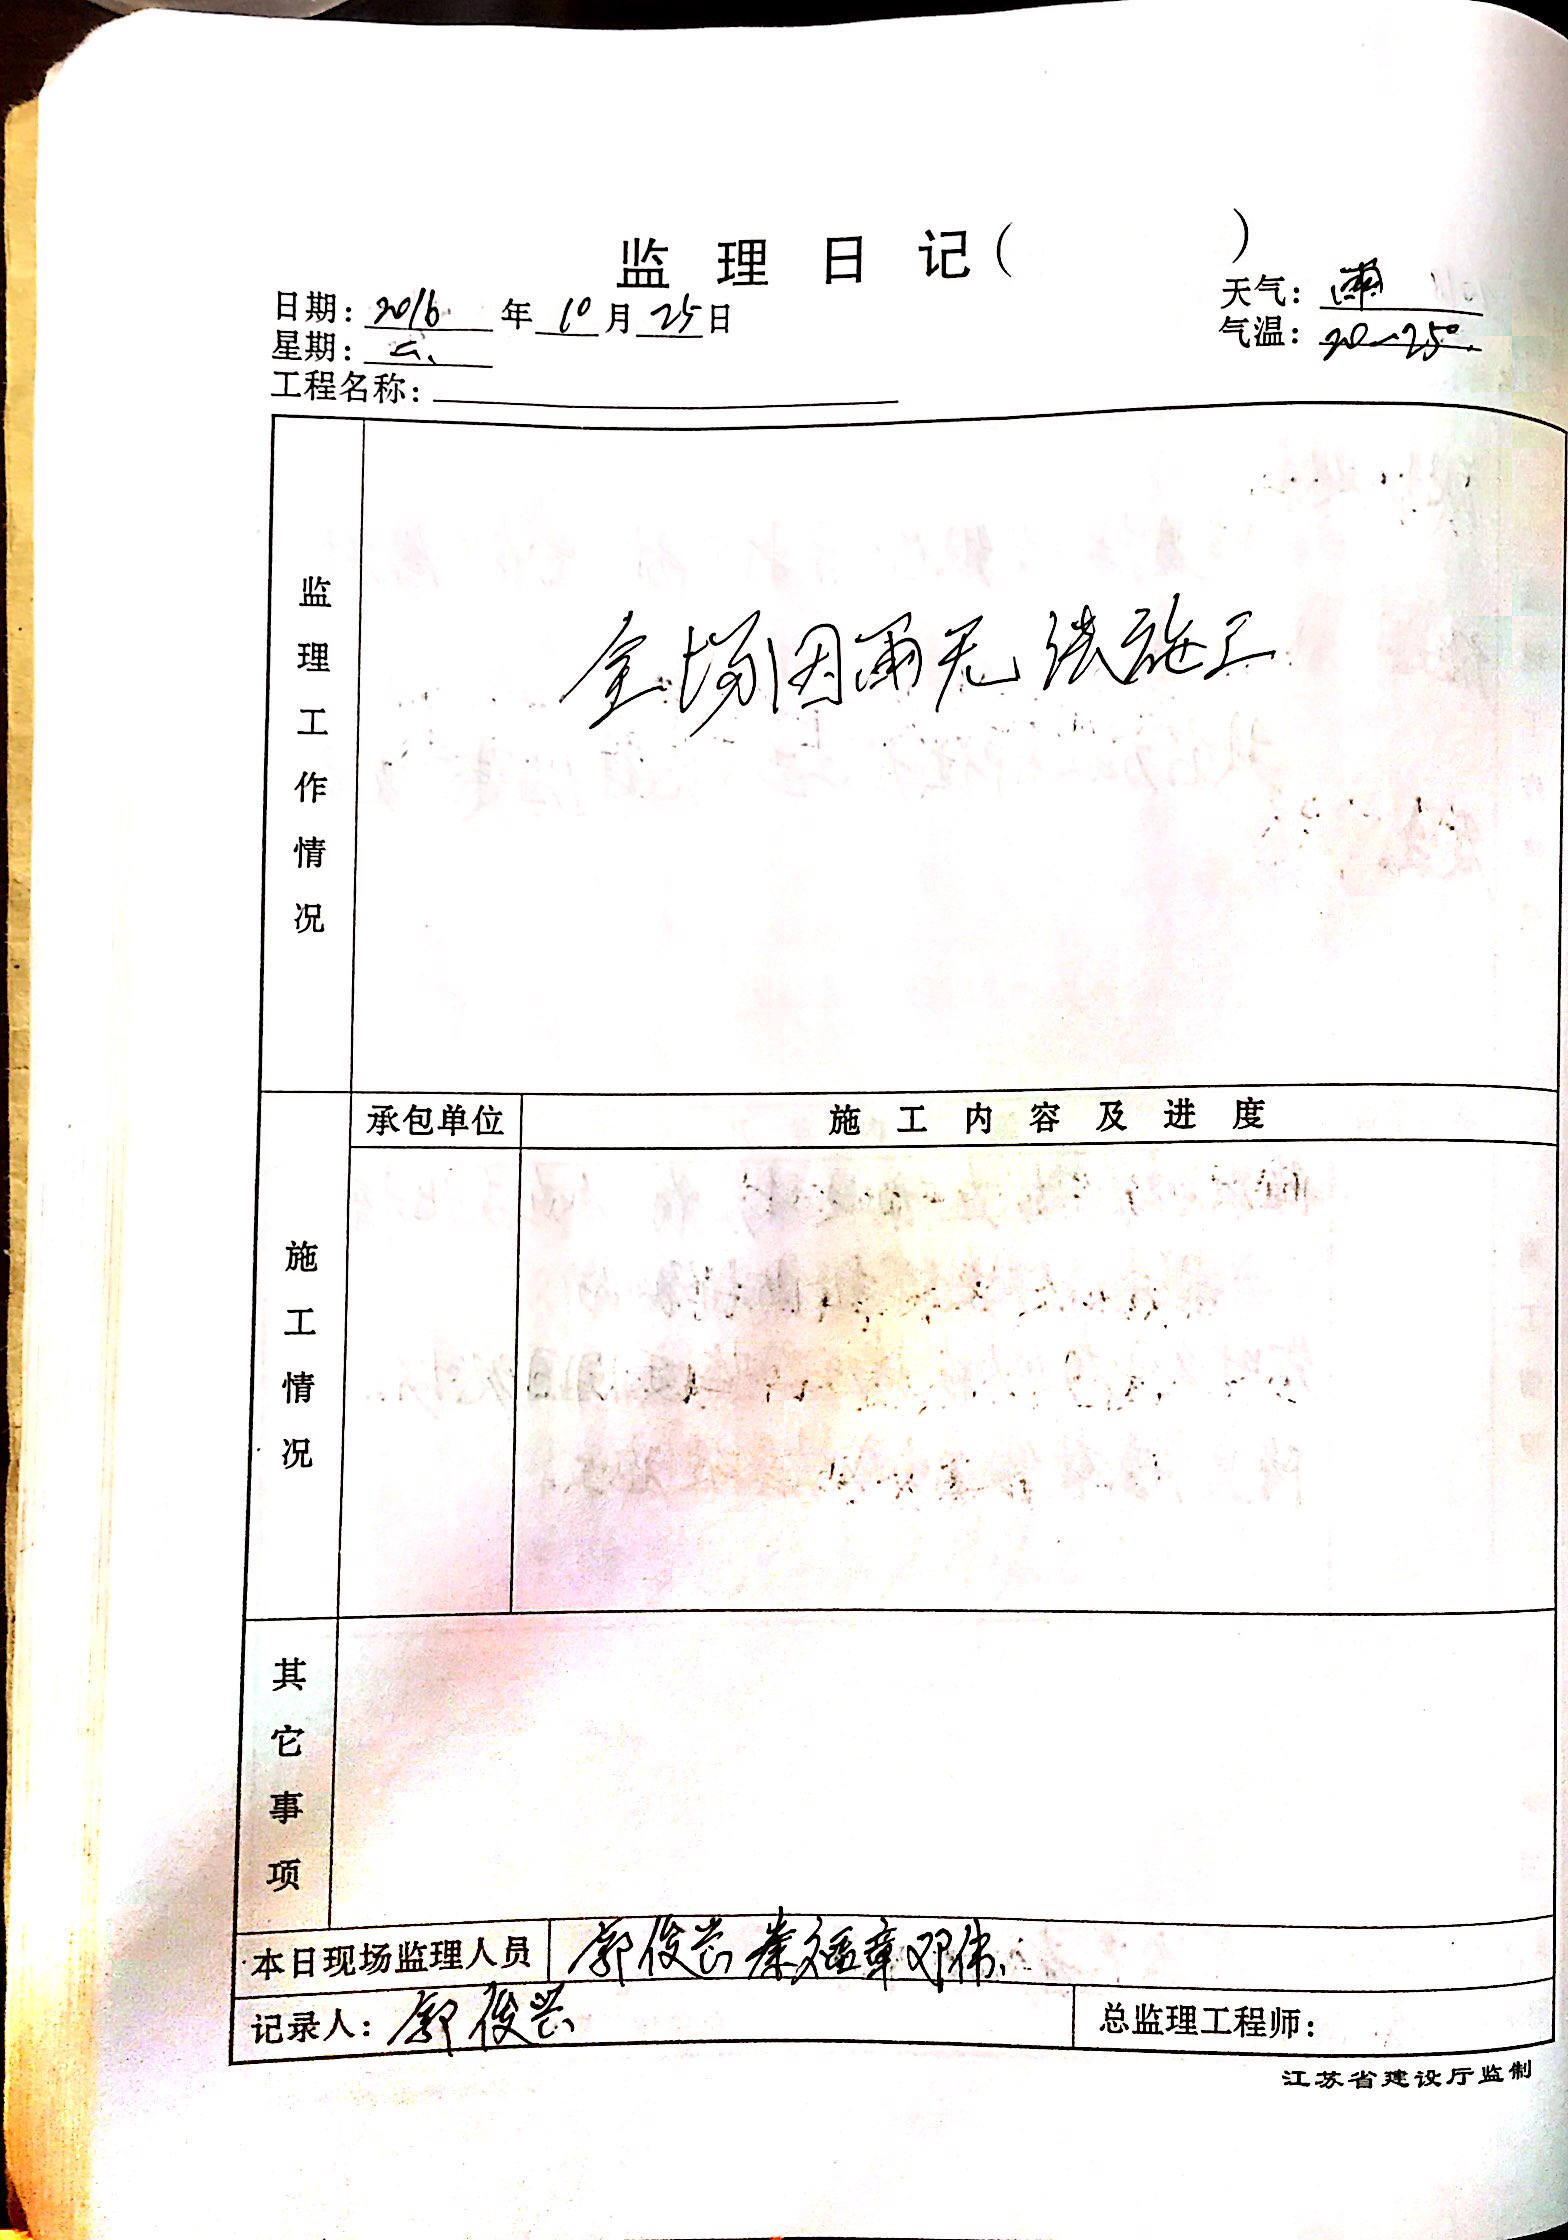 监理日记（ ）
日期：2016年10月25日
天气：雨
星期：二、
气温：20~25°
工程名称：
监理工作情况
全场因雨无法施工
承包单位
施工内容及进度
施工情况
其它事项
本日现场监理人员 郭俊兴 秦文孟章 邓伟、
记录人：郭俊兴
总监理工程师：
江苏省建设厅监制